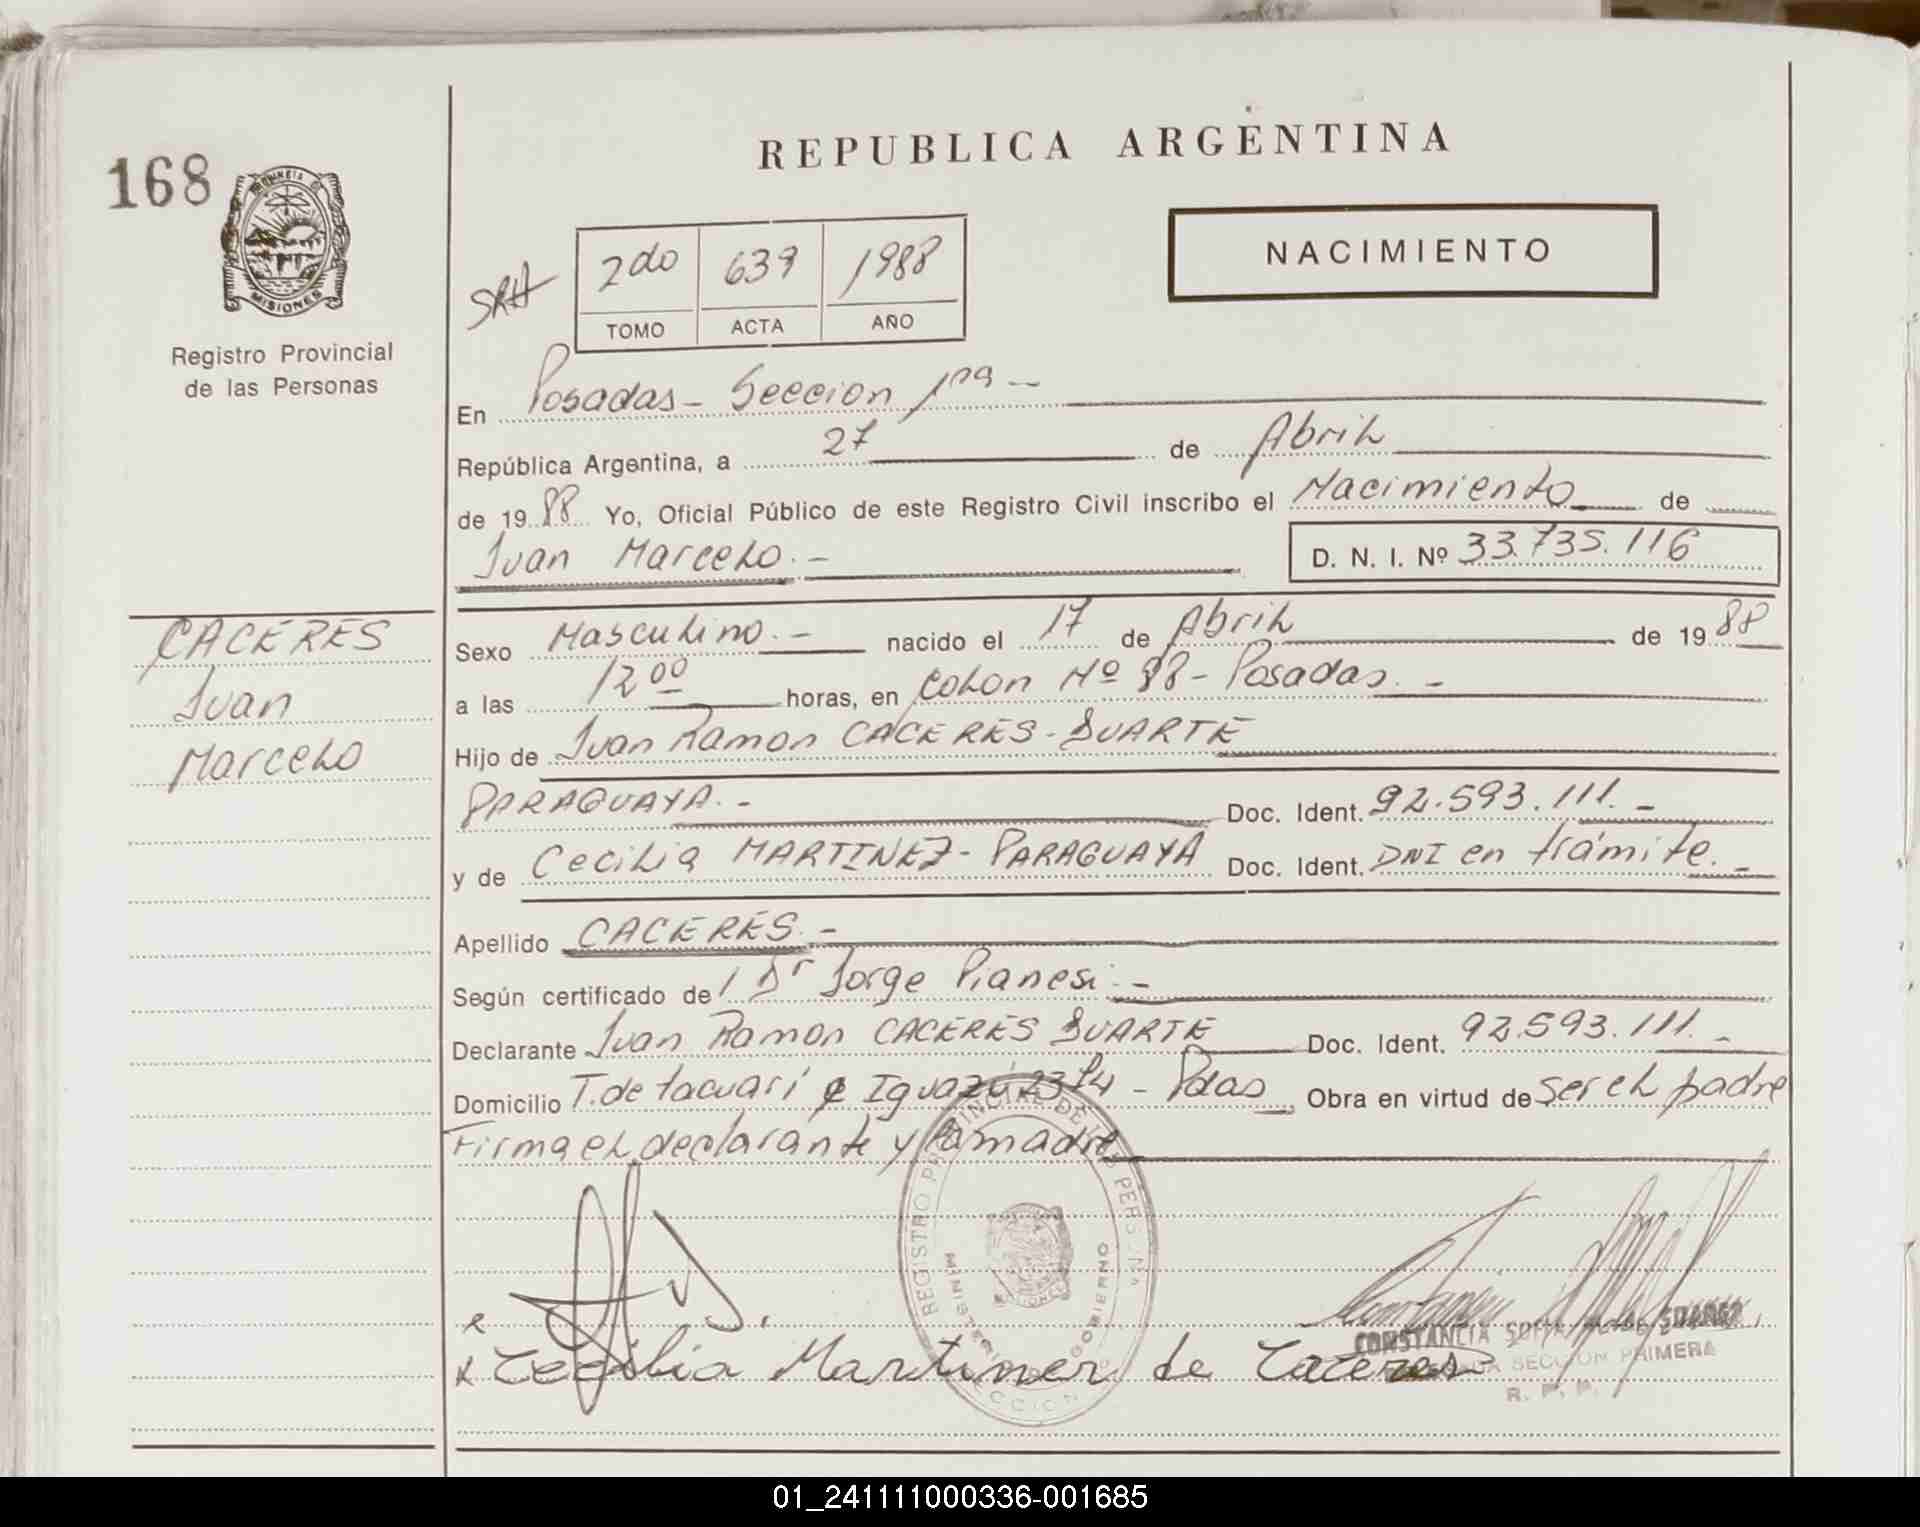 REPUBLICA ARGENTINA
168
PROVINCIA DE
MISIONES
Registro Provincial
de las Personas
SRH
2do 639 1988
TOMO ACTA AÑO
NACIMIENTO
En Posadas - Seccion 1ra -
República Argentina, a 27 de Abril
de 1988 Yo, Oficial Público de este Registro Civil inscribo el Nacimiento de
Juan Marcelo. -
D. N. I. Nº 33.735.116
CACERES
Juan
Marcelo
Sexo Masculino. - nacido el 17 de Abril de 1988
a las 12 00 horas, en Colon Nº 88 - Posadas. -
Hijo de Juan Ramon CACERES - DUARTE
PARAGUAYA. - Doc. Ident. 92.593.111. -
y de Cecilia MARTINEZ - PARAGUAYA Doc. Ident. DNI en trámite. -
Apellido CACERES. -
Según certificado del Dr Jorge Pianesi. -
Declarante Juan Ramon CACERES DUARTE Doc. Ident. 92.593.111. -
Domicilio T. de tacuari e Iguazú 2374 - Pdas Obra en virtud de ser el padre
Firma el declarante y la madre
REGISTRO PROVINCIAL DE LAS PERS.
MINISTERIO GOBIERNO
MISIONES
x Cecilia Martinez de Caceres
CONSTANCIA SUAREZ
SECCION PRIMERA
R. P. P.
01_241111000336-001685